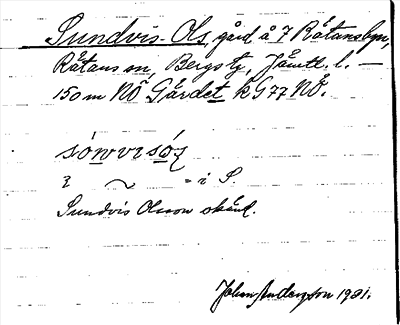 Sundvis-Ols, gård å 7 Råtansbyn,
Råtans sn, Bergs tg, Jämtl. l. —
150 m NÖ Gårdet kG 77 NÖ.
sónvvisóz
~ = i S.
Sundvis Olsson skånd.
John Anderzon 1931.